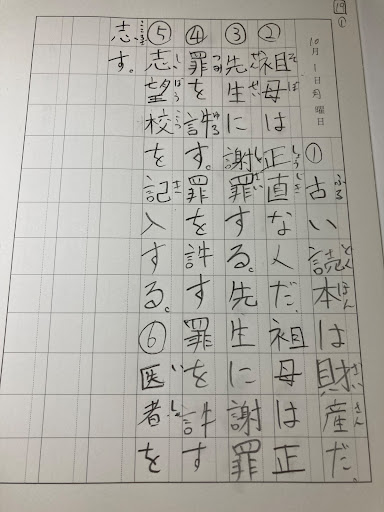 19
①
10月1日月曜日
①古い読本は財産だ。
②祖母は正直な人だ祖母は正
③先生に謝罪する。先生に謝罪
④罪を許す。罪を許す罪を許す
⑤志望校を記入する。⑥医者を
志す。